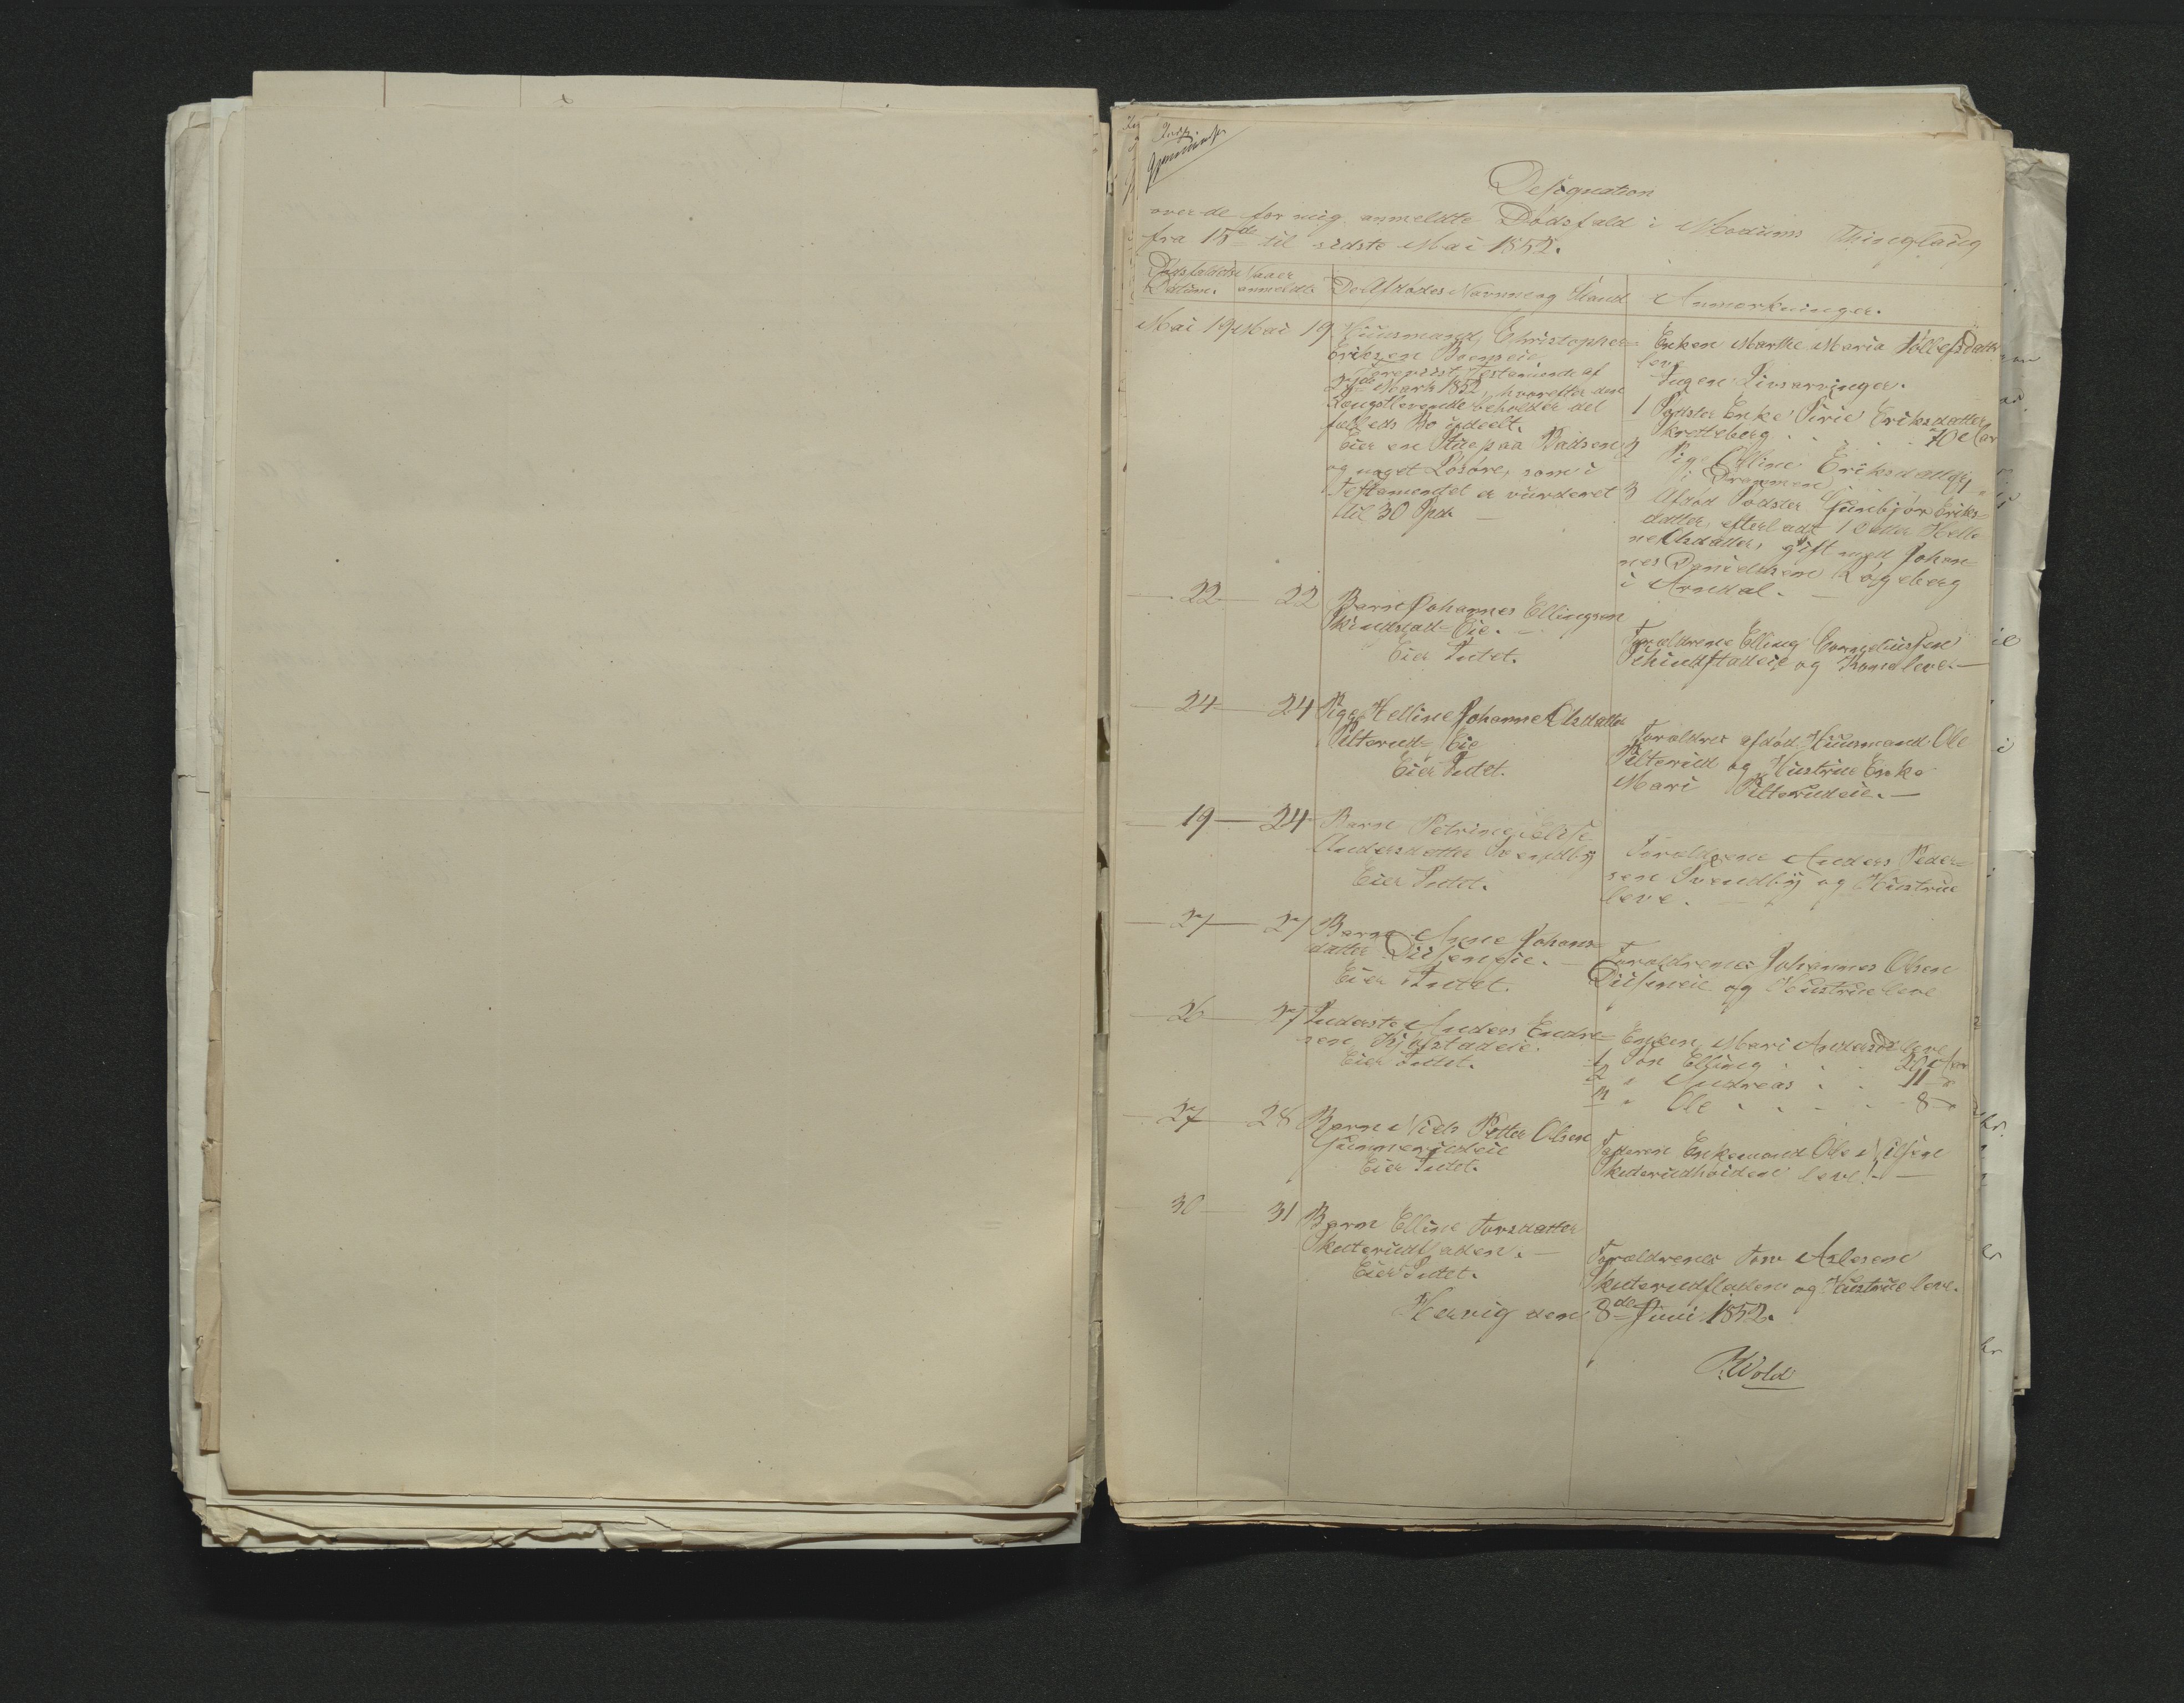 Designation
over de for mig anmeldte Dødsfald i Modums Thinglaug
fra 15de til sidste Mai 1852.
Dødsfaldets Datum.
Naar anmeldt.
De Afdødes Navne og Stand
Anmærkninger.
Mai 19 Mai 19 Huusmand Christopher
Eriksen
Foreviist Testamente af
27de Marts 1852, hvorefter den
Længstlevende beholder det
fælleds Bo udeelt.
Eier en Stue paa
og noget Løsøre, som i
Testamentet er vurderet
til 30 Spd.
Enken Marthe Maria Tollefsdatter
lever
Ingen Livsarvinger.
1 Sødster Enke Sirie Eriksdatter
Skretteberg 70 Aar
2 Pige Olline Eriksdatter
i Drammen
3 Afdød Sødster Gunbjør Eriks-
datter, efterladt 1 Datter Helle
ne Olsdatter, gift med Johan-
nes Danielsen Løgeberg
i Arndal.
22 22 Barn Johannes Ellingsen
Skindstad-Eie.
Eier Intet.
Forældrene Elling Corneliussen
Schindstadeie og Kone leve.
24 24 Pige Helline Johanne Olsdatter
Pitterud-Eie
Eier Intet.
Forældre afdød Huusmand Ole
Pitterud og Hustrue Enke
Mari Pitterudeie.
19 24 Barn Petrine Elise
Andersdatter Svendby
Eier Intet.
Forældrene Anders Peder-
sen Svendby og Hustrue
leve.
27 27 Barn Anne Johans-
datter
Eier Intet.
Forældrene Johannes Olsen
og Hustrue leve
26 27 Inderste Anders Endre-
sen Kjøstadeie.
Eier Intet.
Enken Mari Andersd. lever
1 Søn Elling 20 Aar
2 " Andreas 11 "
3 " Ole 8 "
27 28 Barn Niels Petter Olsen
Gunnerudeie
Eier Intet.
Faderen Enkemand Ole Nilsen
Skuterudhøiden lever.
30 31 Barn Elline Torsdatter
Skuterudfladen.
Eier Intet.
Forældrene Tor Aslesen
Skuterudfladen og Hustrue leve.
Hervig den 8de Juni 1852.
Wold